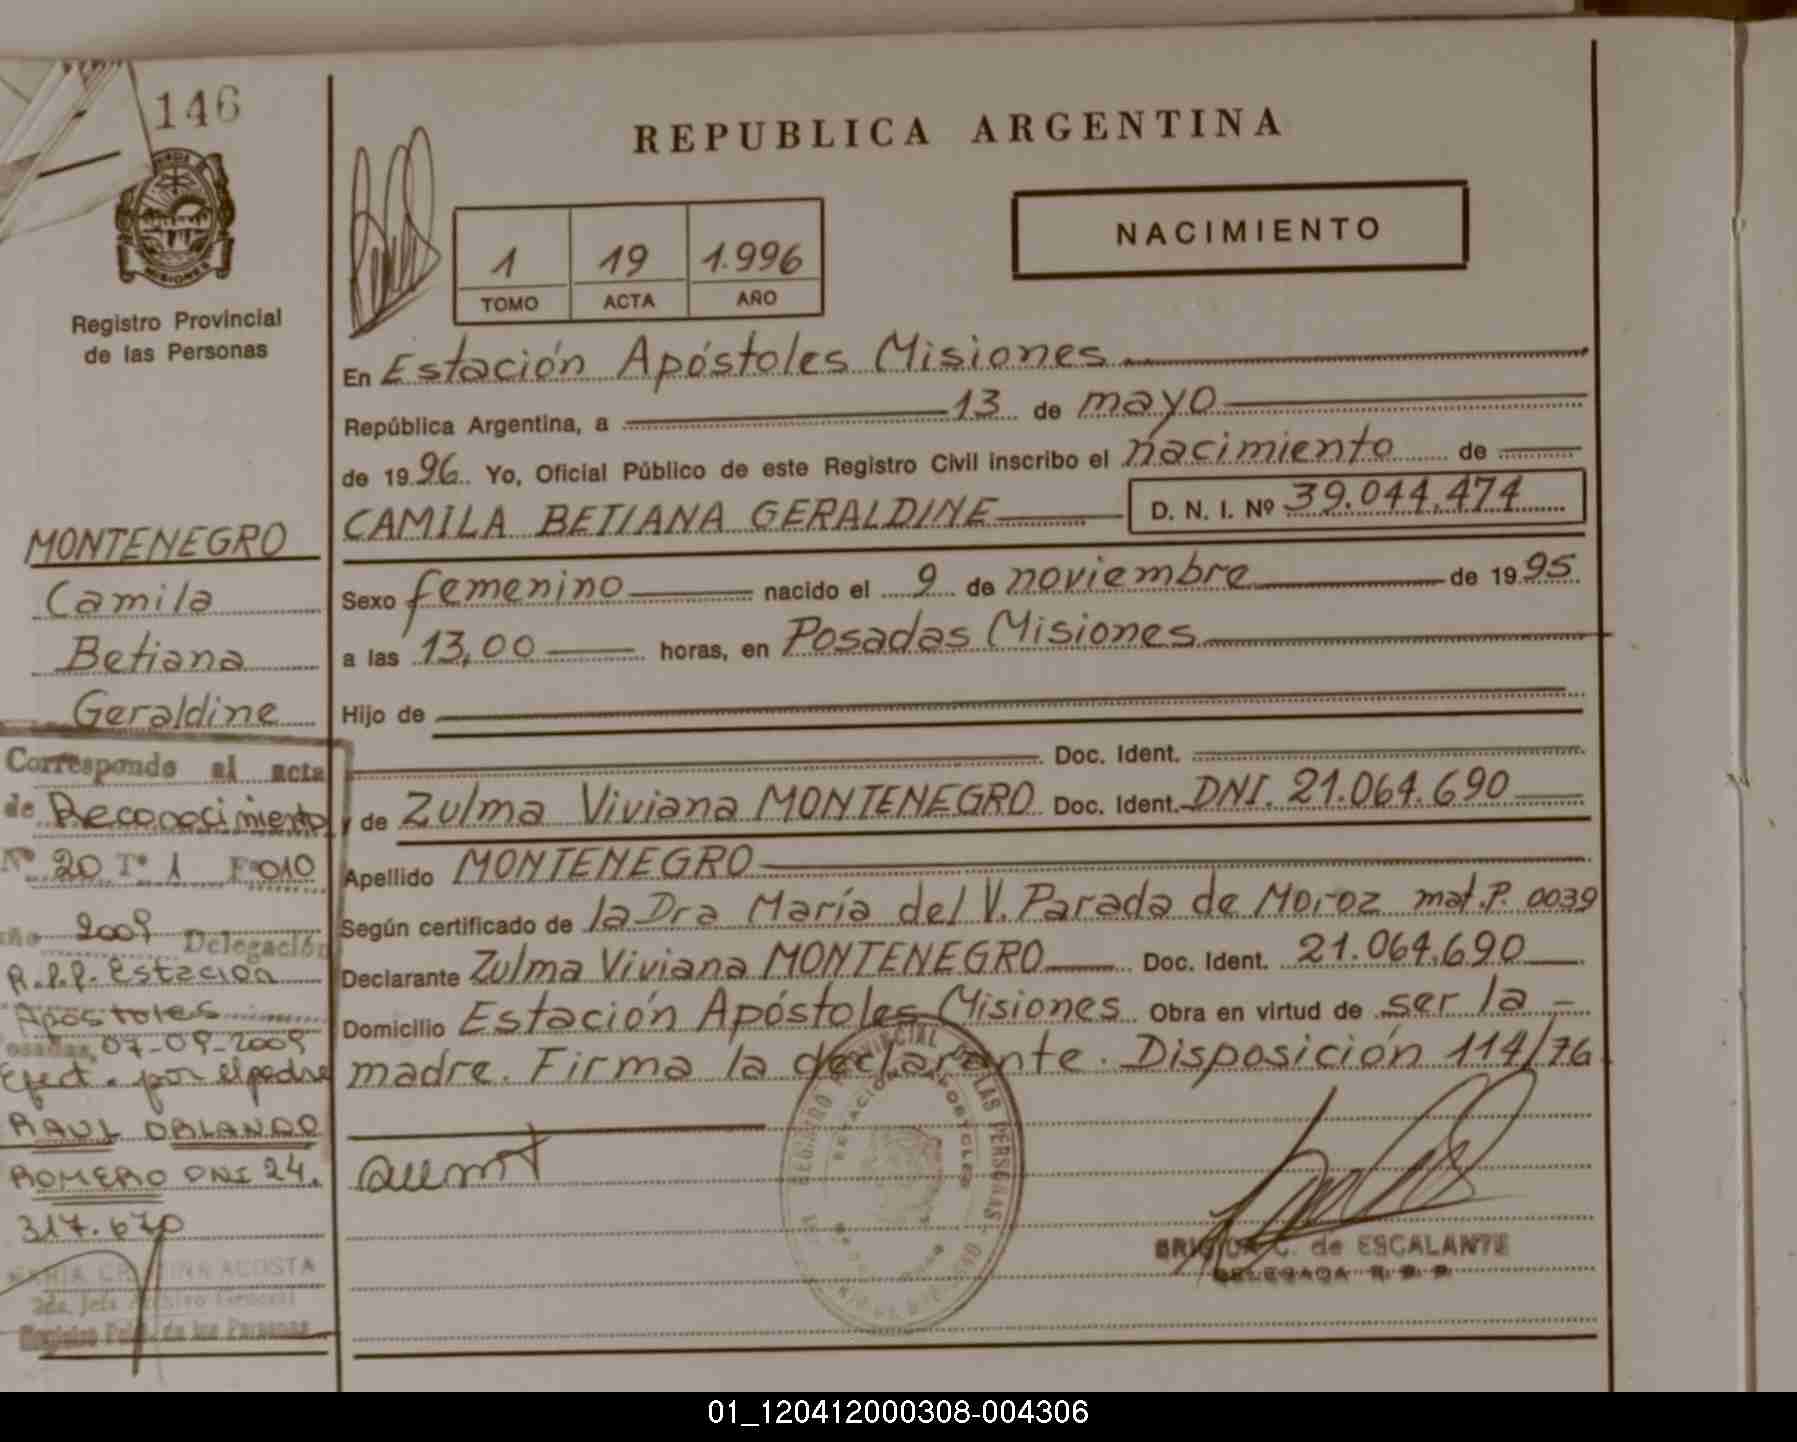 146
REPUBLICA ARGENTINA
NACIMIENTO
1 19 1.996
TOMO ACTA AÑO
MISIONES
Registro Provincial
de las Personas
En Estación Apóstoles Misiones
República Argentina, a 13 de mayo
de 1996. Yo, Oficial Público de este Registro Civil inscribo el nacimiento de
CAMILA BETIANA GERALDINE D. N. I. Nº 39.044.474
Sexo femenino nacido el 9 de noviembre de 1995
a las 13,00 horas, en Posadas Misiones
Hijo de
Doc. Ident.
y de Zulma Viviana MONTENEGRO Doc. Ident. DNI. 21.064.690
Apellido MONTENEGRO
Según certificado de la Dra María del V. Parada de Moroz mat.P. 0039
Declarante Zulma Viviana MONTENEGRO Doc. Ident. 21.064.690
Domicilio Estación Apóstoles Misiones Obra en virtud de ser la -
madre. Firma la declarante. Disposición 114/76
REGISTRO PROVINCIAL DE LAS PERSONAS
ESTACION APOSTOLES
BRIGIDA C. de ESCALANTE
DELEGADA R. P. P.
MONTENEGRO
Camila
Betiana
Geraldine
Corresponde al acta
de Reconocimiento
Nº 20 Tº 1 Fº 010
año 2009 Delegación
R.P.P. Estación
Apóstoles
Posadas, 07-09-2009
Efect. por el padre
RAUL ORLANDO
ROMERO DNI 24.
317.670
MARIA CRISTINA ACOSTA
2da. Jefe Archivo General
Registro Pcial. de las Personas
01_120412000308-004306